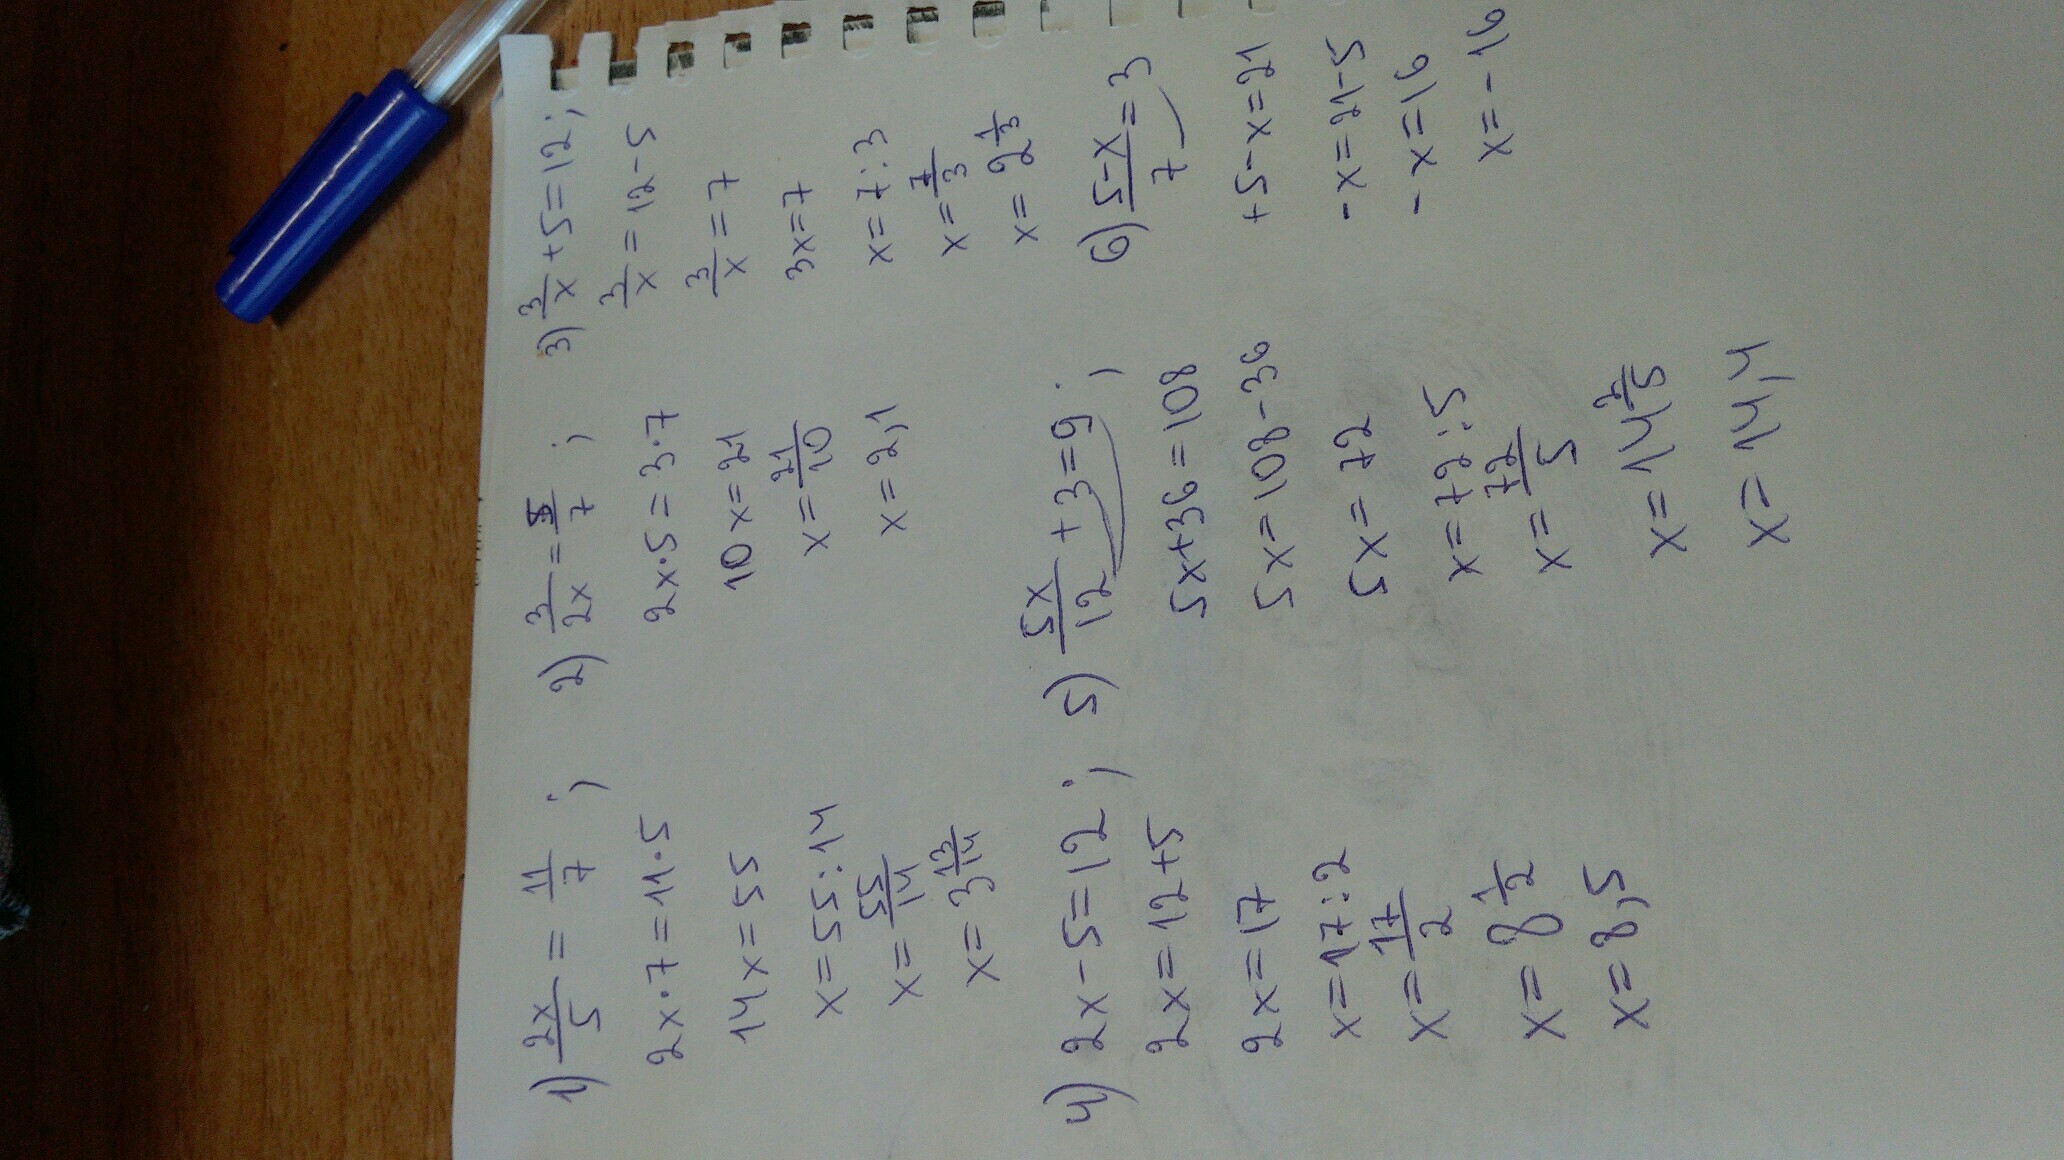 1) 2x/5 = 11/7 ;
2x·7=11·5
14x=55
x=55:14
x=55/14
x=3 13/14
2) 3/2x = 5/7 ;
2x·5=3·7
10x=21
x=21/10
x=2,1
3) 3/x +5=12;
3/x =12-5
3/x =7
3x=7
x=7:3
x=7/3
x=2 1/3
4) 2x-5=12 ;
2x=12+5
2x=17
x=17:2
x=17/2
x=8 1/2
x=8,5
5) 5x/12 +3=9 ;
5x+36=108
5x=108-36
5x=72
x=72:5
x=72/5
x=14 2/5
x=14,4
6) 5-x/7 =3
+5-x=21
-x=21-5
-x=16
x=-16